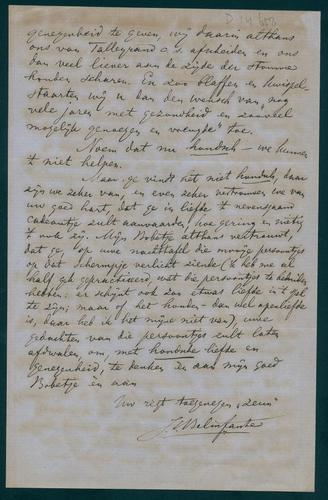 genegenheid te geven, wij daarin althans
ons van Talleyrand c.s. afscheiden en ons
dan veel liever aan de zijde der stomme
honden scharen. En zoo blaffen en kwispel-
staarten wij u dan den wensch van "nog
vele jaren" met gezondheid en zooveel
mogelijk genoegen en vreugde toe.
Noem dat nu hondsch – we kunnen
't niet helpen.
Maar ge vindt het niet hondsch, daar
zijn we zeker van en even zeker vertrouwen we van
uw goed hart, dat ge in liefde 't nevensgaand
cadeautje zult aanvaarden, hoe gering en nietig
't ook zij. Mijn Bobetje althans vertrouwt,
dat ge, op uwe nachttafel die mooije persoontjes
op dat schermpje verlicht ziende
half ge
hebben: er schijnt ook zoo etwas liefde in 't spel
te zijn; maar of het honden- dan wel apenliefde
is, daar heb ik het mijne niet van), uwe
gedachten van die persoontjes zult laten
afdwalen, om, met hondsche liefde en
genegenheid, te denken aan mijn goed
Bobetje en aan
Uw regt toegenegen "zoon"
J. J. Belinfante